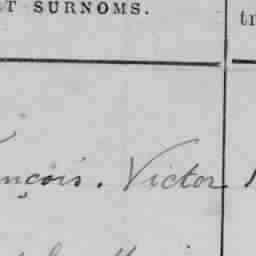 T SURNOMS. tr
nçois. Victor